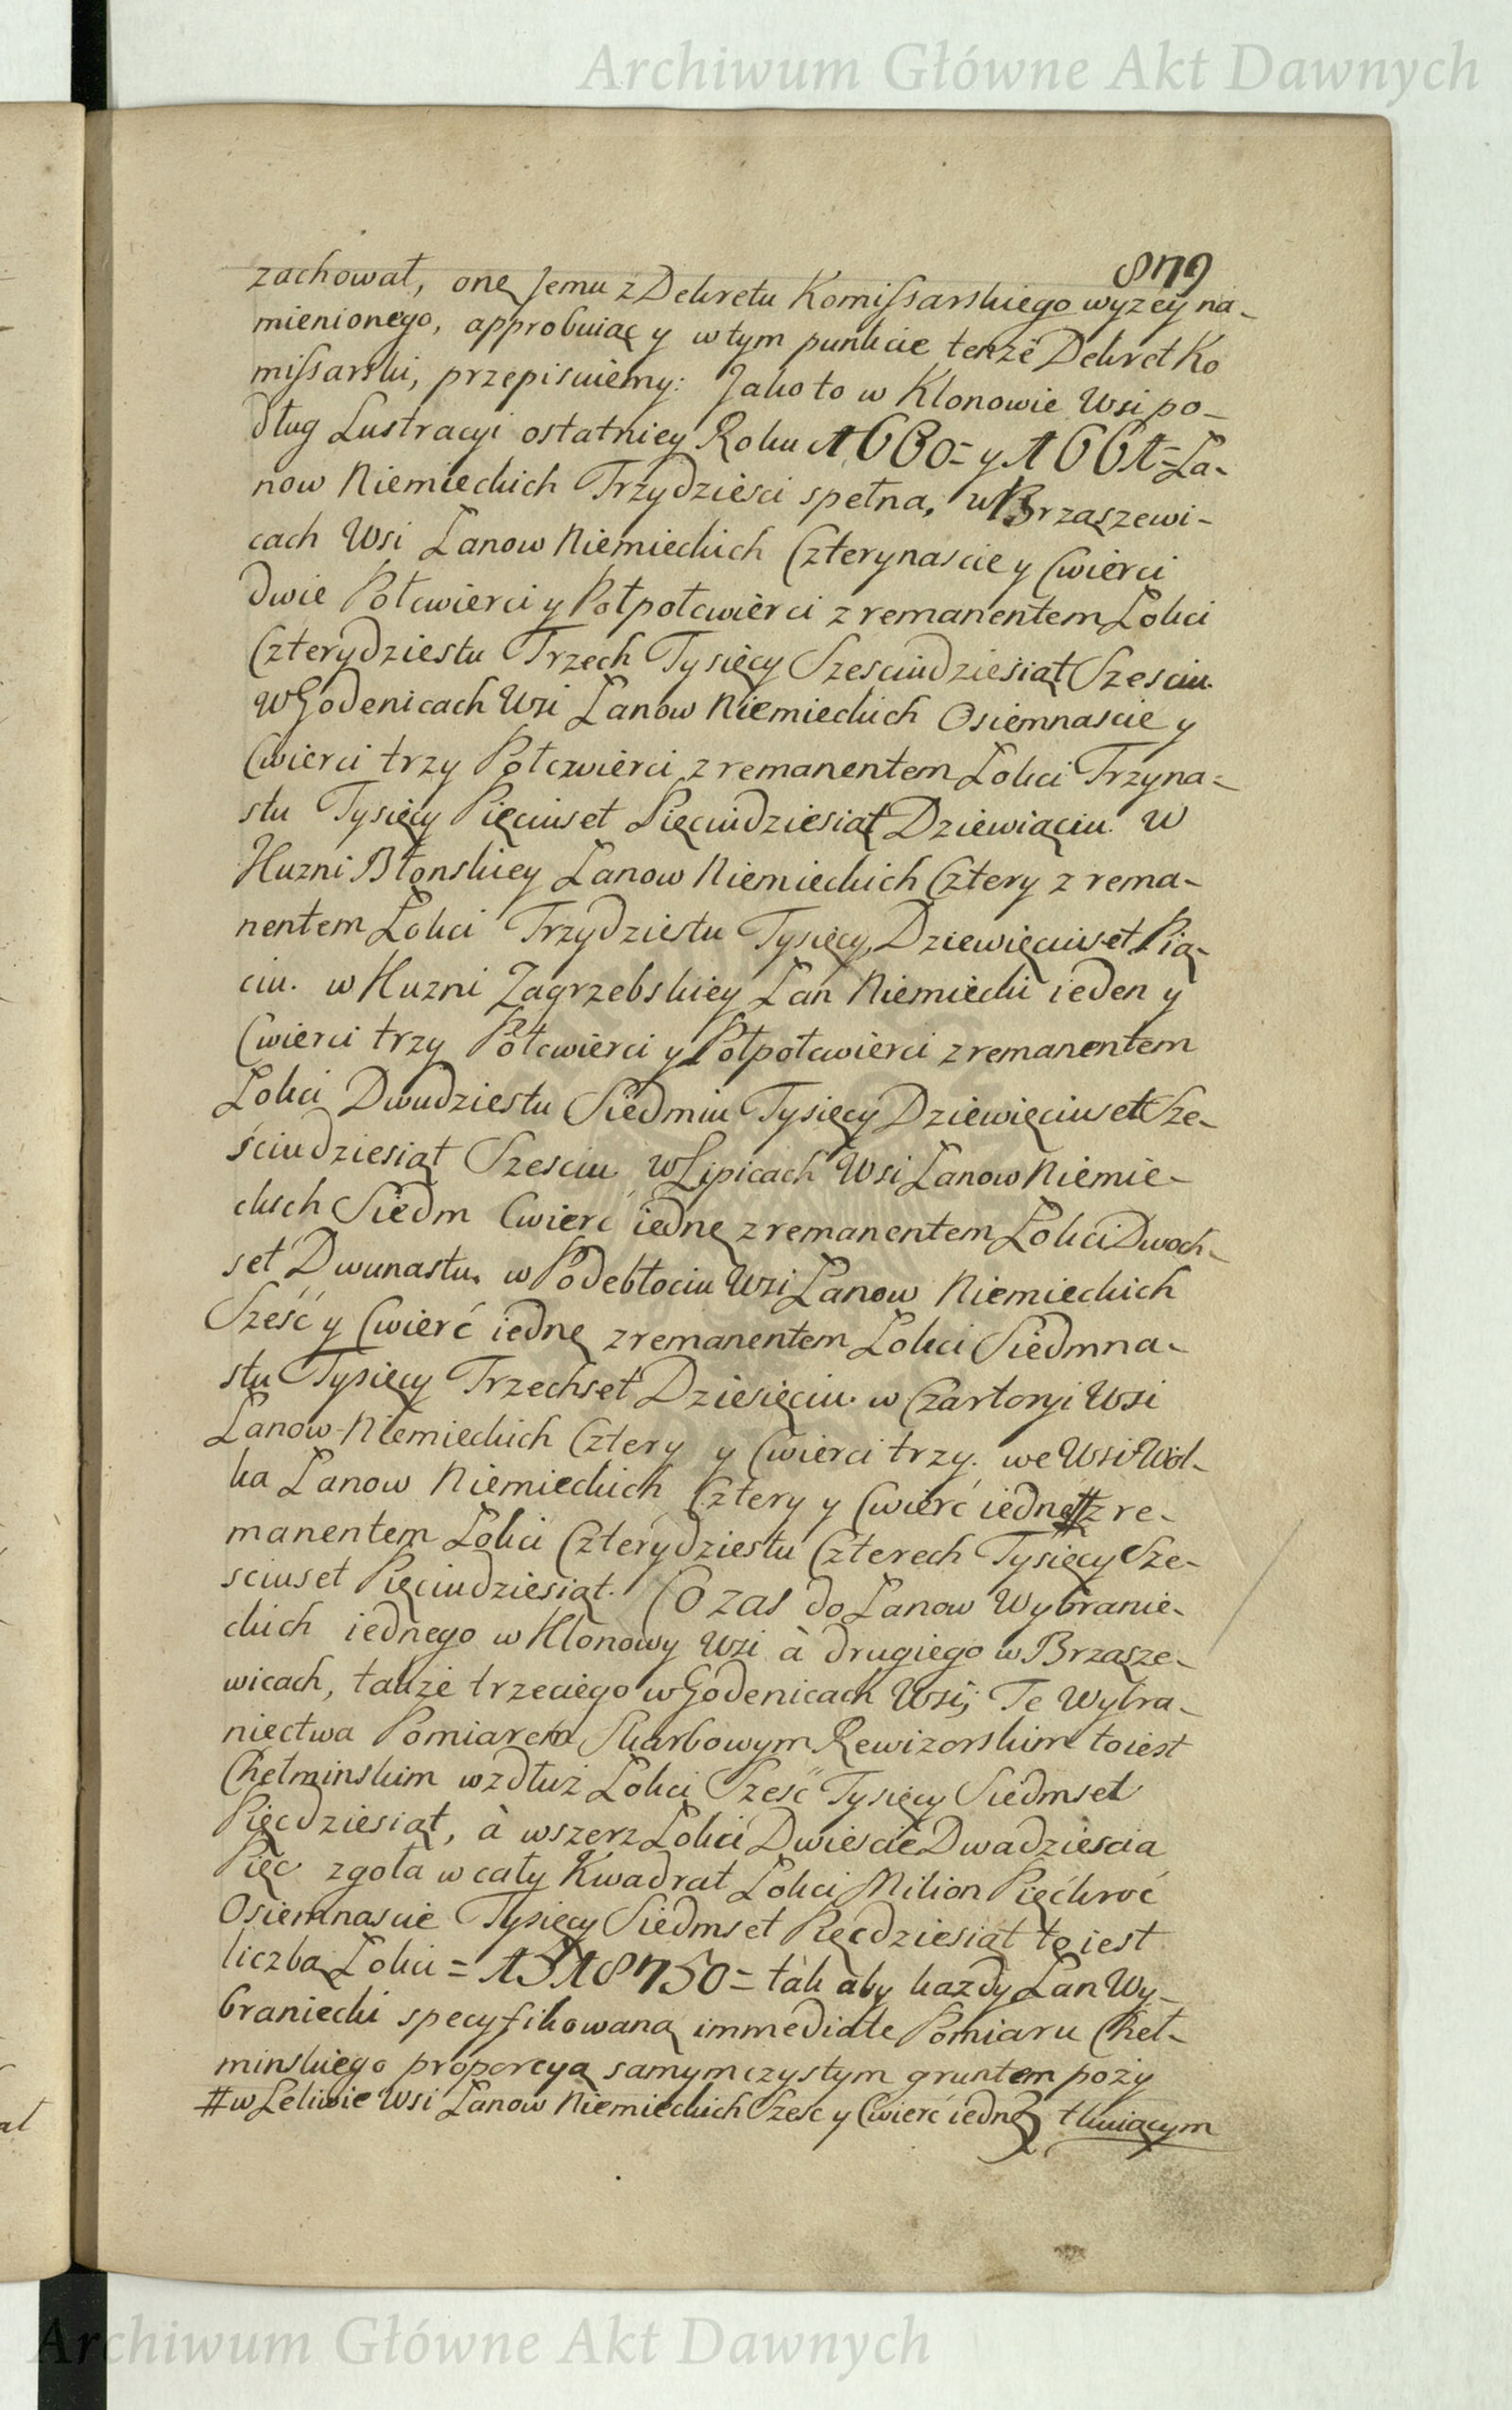 Archiwum Główne Akt Dawnych
879
zachował, onę Jemu z Dekretu Komissarskiego wyzey na-
mienionego, approbuiąc y w tym punkcie tenże Dekret Ko
missarski, przepisuiemy: Jako to w Klonowie Wsi po-
dług Lustracyi ostatniey Roku 1660 = y 1661 = Ła-
now Niemieckich Trzydzieści spełna, w Brzaszewi-
cach Wsi Łanow Niemieckich Czterynascie y Cwierci
dwie Połcwierci y Połpołcwierci z remanentem Łokci
Czterydziestu Trzech Tysięcy Szesciudziesiąt Szesciu.
W Godenicach Wsi Łanow Niemieckich Osiemnascie y
Cwierci trzy Połczwierci z remanentem Łokci Trzyna-
stu Tysięcy Pięciuset Pięciudziesiąt Dziewiąciu. W
Kuzni Błonskiey Łanow Niemieckich Cztery z rema-
nentem Łokci Trzydziestu Tysięcy Dziewięciuset Pią-
ciu. w Kuzni Zagrzebskiey Łan Niemiecki ieden y
Cwierci trzy Połcwierci y Połpołcwierci z remanentem
Łokci Dwudziestu Siedmiu Tysięcy Dziewięciuset Sze-
ściudziesiąt Szesciu w Lipicach Wsi Łanow Niemie-
ckich Siedm Cwierć iednę z remanentem Łokci Dwoch-
set Dwunastu. w Podebłociu Wsi Łanow Niemieckich
Sześć y Cwierć iednę z remanentem Łokci Siedmna-
stu Tysięcy Trzechset Dziesięciu. w Czartoryi Wsi
Łanow Niemieckich Cztery y Cwierci trzy. we Wsi Wol-
ka Łanow Niemieckich Cztery y Cwierć iednę # z re-
manentem Łokci Czterydziestu Czterech Tysięcy Sze-
sciuset Pięciudziesiąt. Co zas do Łanow Wybranie-
ckich iednego w Klonowy Wsi à drugiego w Brzasze-
wicach, także trzeciego w Godenicach Wsi; Te Wybra-
niectwa Pomiarem Skarbowym Rewizorskim to iest
Chełminskim wzdłuż Łokci Sześć Tysięcy Siedmset
Pięcdziesiąt, à wszerz Łokci Dwiescie Dwadziescia
Pięc zgoła w cały Kwadrat Łokci Milion Pięćkroć
Osiemnascie Tysięcy Siedmset Pięcdziesiąt to iest
liczbą Łokci = 1518750 = tak aby każdy Łan Wy-
braniecki specyfikowaną immediate Pomiaru Cheł-
minskiego proporcyą samym czystym gruntem poży
# w Leliwie Wsi Łanow Niemieckich Szesc y Cwierć iednę tkuiącym
Archiwum Główne Akt Dawnych